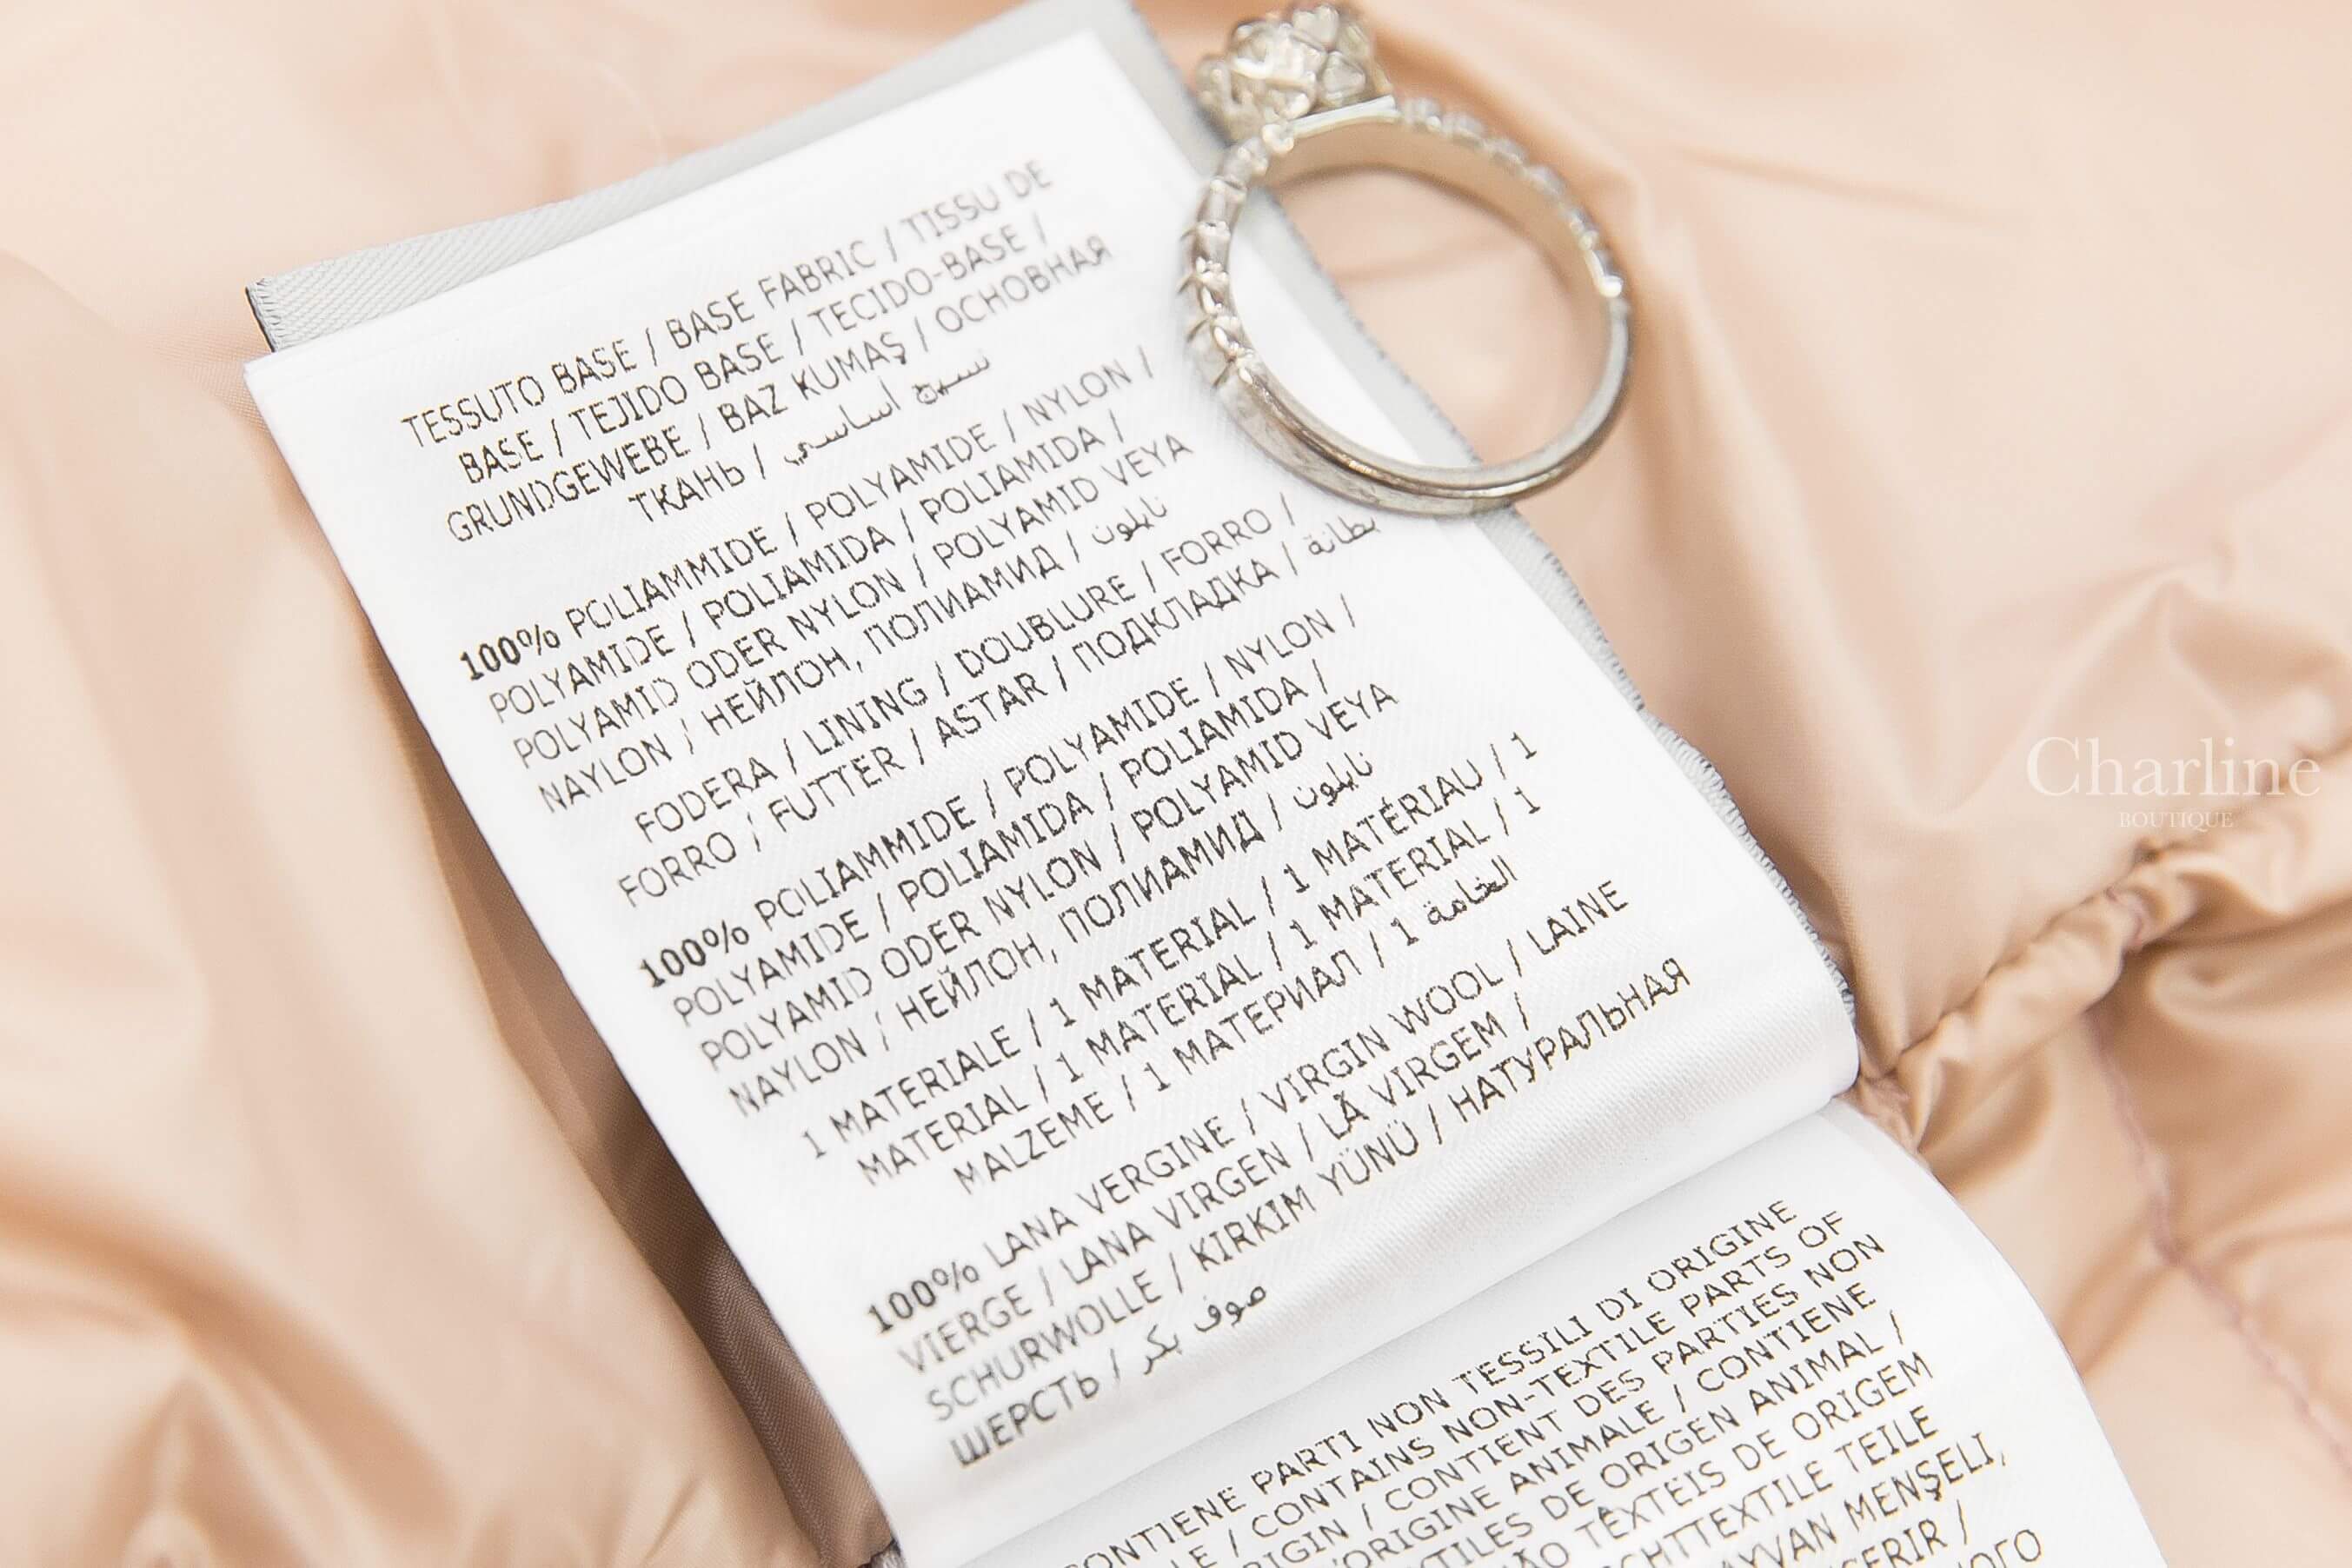 TESSUTO BASE / BASE FABRIC / TISSU DE
BASE / TEJIDO BASE / TECIDO-BASE /
GRUNDGEWEBE / BAZ KUMAŞ / ОСНОВНАЯ
ТКАНЬ / نسيج أساسي
100% POLIAMMIDE / POLYAMIDE / NYLON /
POLYAMIDE / POLIAMIDA / POLIAMIDA /
POLYAMID ODER NYLON / POLYAMID VEYA
NAYLON / НЕЙЛОН, ПОЛИАМИД / نايلون
FODERA / LINING / DOUBLURE / FORRO /
FORRO / FUTTER / ASTAR / ПОДКЛАДКА / بطانة
100% POLIAMMIDE / POLYAMIDE / NYLON /
POLYAMIDE / POLIAMIDA / POLIAMIDA /
POLYAMID ODER NYLON / POLYAMID VEYA
NAYLON / НЕЙЛОН, ПОЛИАМИД / نايلون
1 MATERIALE / 1 MATERIAL / 1 MATÉRIAU / 1
MATERIAL / 1 MATERIAL / 1 MATERIAL / 1
MALZEME / 1 МАТЕРИАЛ / 1 الخامة
100% LANA VERGINE / VIRGIN WOOL / LAINE
VIERGE / LANA VIRGEN / LÃ VIRGEM /
SCHURWOLLE / KIRKIM YÜNÜ / НАТУРАЛЬНАЯ
ШЕРСТЬ / صوف بكر
CONTIENE PARTI NON TESSILI DI ORIGINE
/ CONTAINS NON-TEXTILE PARTS OF
/ CONTIENT DES PARTIES NON
ANIMALE / CONTIENE
DE ORIGEN ANIMAL /
TÊXTEIS DE ORIGEM
TEILE
MENŞELİ,
Charline
BOUTIQUE